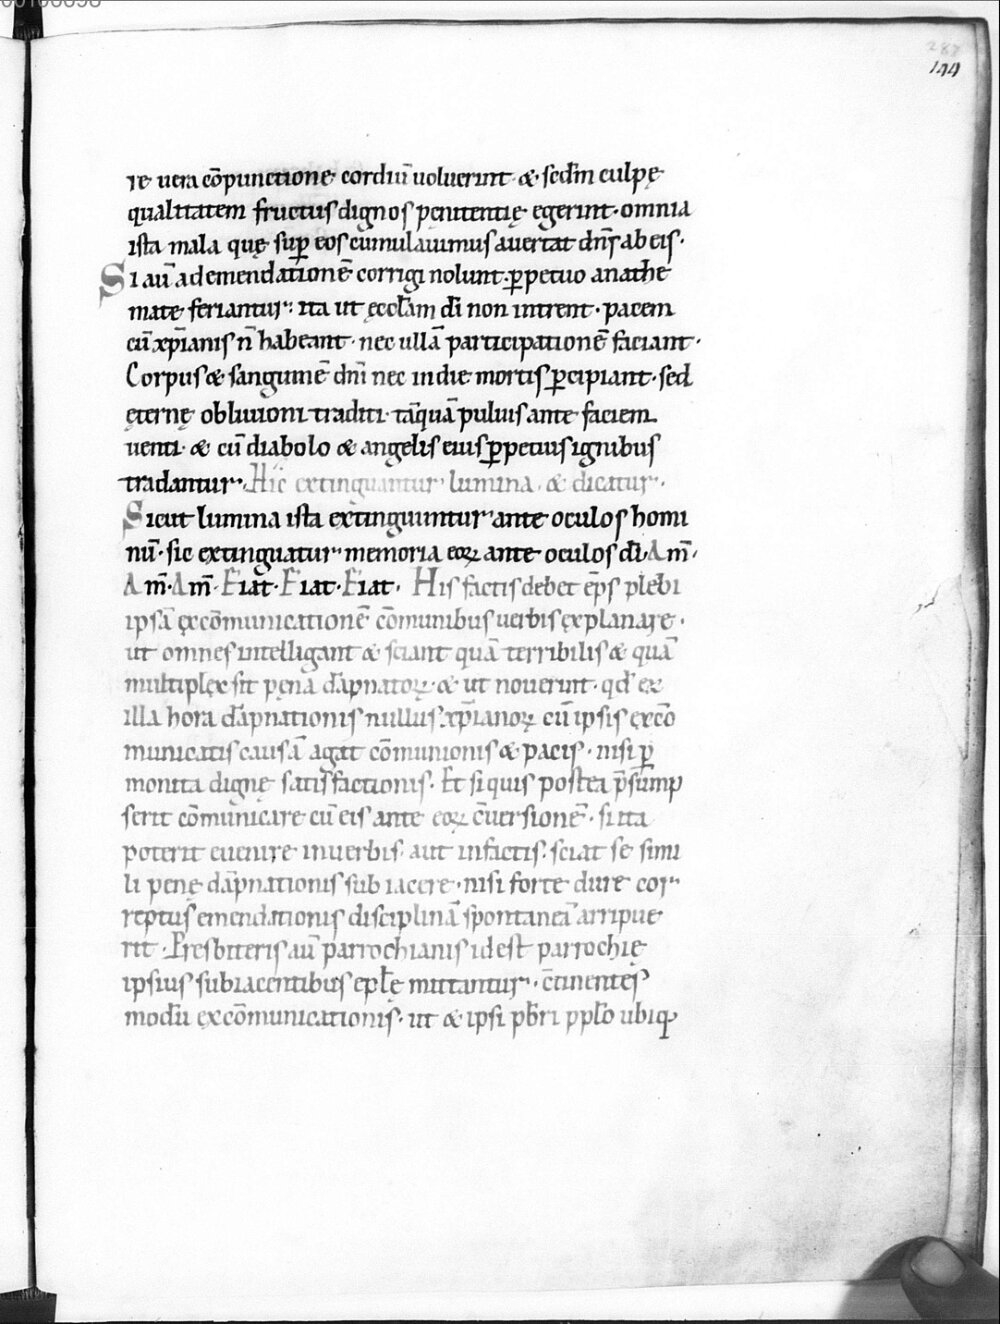 287
144
re uera cōpunctione cordiū uoluerint · & sedm̄ culpę
qualitatem fructus dignos penitentię egerint · omnia
ista mala quę sup̄ eos cumulauimus auertat dn̄s ab eis ·
Si aū ad emendationē corrigi nolunt · ꝑpetuo anathe
mate feriantur · ita ut ęccl̄am dī non intrent · pacem
cū xp̄ianis n̄ habeant · nec ullā participationē faciant ·
Corpus & sanguinē dnī nec in die mortis ꝑcipiant · sed
ęternę obliuioni traditi · tāquā puluis ante faciem
uenti · & cū diabolo & angelis eius ꝑpetuis ignibus
tradantur · Hic extinguantur lumina · & dicatur ·
Sicut lumina ista extinguuntur ante oculos homi
nū · sic extinguatur memoria eoꝝ ante oculos dī · Am̄ ·
Am̄ · Am̄ · Fiat · Fiat · Fiat · His factis debet ep̄s plebi
ipsā ęxcōmunicationē cōmunibus uerbis ęxplanare ·
ut omnes intelligant & sciant quā terribilis & quā
multiplęx sit pęna dāpnatoꝝ · & ut nouerint · qd̄ ex
illa hora dāpnationis nullus xp̄ianoꝝ cū ipsis ęxcō
municatis causā agat cōmunionis & pacis · nisi ꝑ
monita dignę satisfactionis · Et si quis postea p̄sūmp
serit cōmunicare cū eis ante eoꝝ c̄uersionē · si ita
poterit euenire in uerbis · aut in factis · sciat se simi
li penę dāpnationis subiacere · nisi forte dure cor
reptus emendationis disciplinā spontaneā arripue
rit · Presbiteris aū parrochianis id est parrochię
ipsius subiacentibus eplę mittantur · c̄tinentes
modū excōmunicationis · ut & ipsi pb̄ri ppl̄o ubiq;